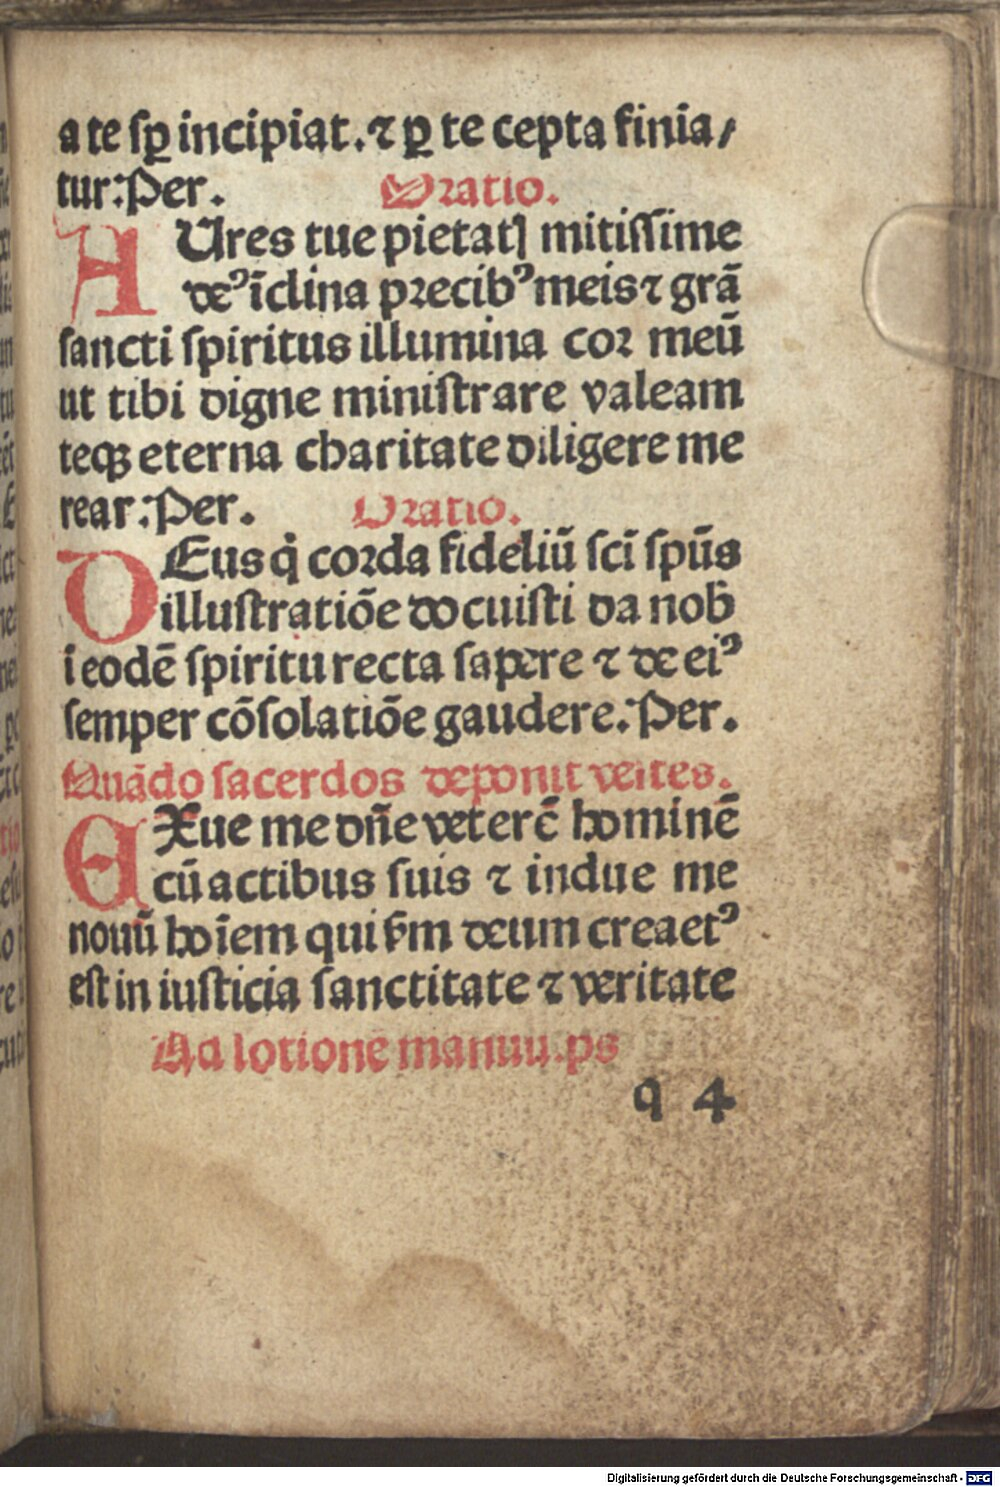 a te sꝑ incipiat. ⁊ ꝑ te cepta finia/
tur: Per. Oratio.
AUres tue pietatꝭ mitissime
deꝰ īclina precibꝰ meis ⁊ grā
sancti spiritus illumina cor meū
ut tibi digne ministrare valeam
teqꝫ eterna charitate diligere me
rear: Per. Oratio.
DEus q̇ corda fideliū scī spūs
illustratiōe docuisti da nob̄
ī eodē spiritu recta sapere ⁊ de eiꝰ
semper cōsolatiōe gaudere: Per.
Quādo sacerdos deponit vestes.
EXue me dn̄e veterē hominē
cū actibus suis ⁊ indue me
nouū hoīem qui ẜm deum creaetꝰ
est in iusticia sanctitate ⁊ veritate
Ad lotionē manuu. ps
q 4
Digitalisierung gefördert durch die Deutsche Forschungsgemeinschaft - DFG